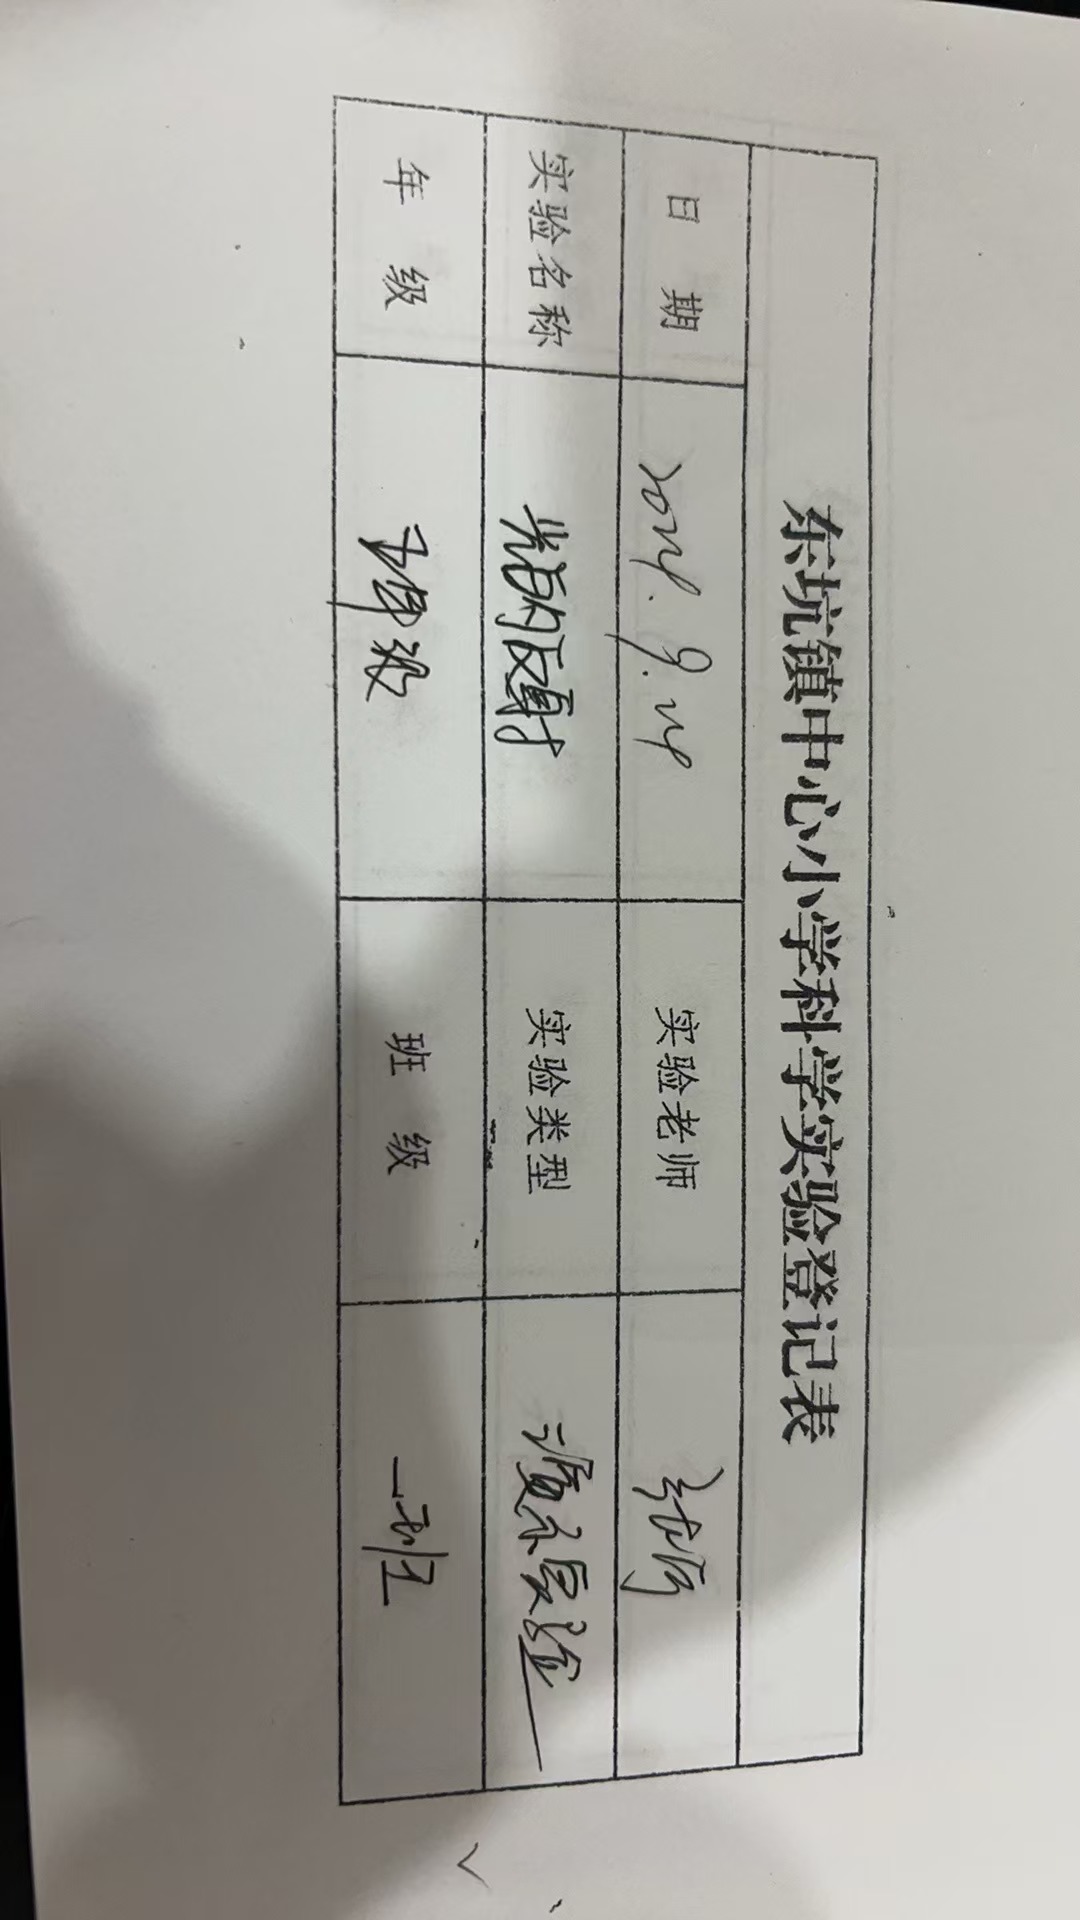 东坑镇中心小学科学实验登记表
日 期 2024.9.24 实验老师
实验名称 光的反射 实验类型 演示实验
年 级 五年级 班 级 一班